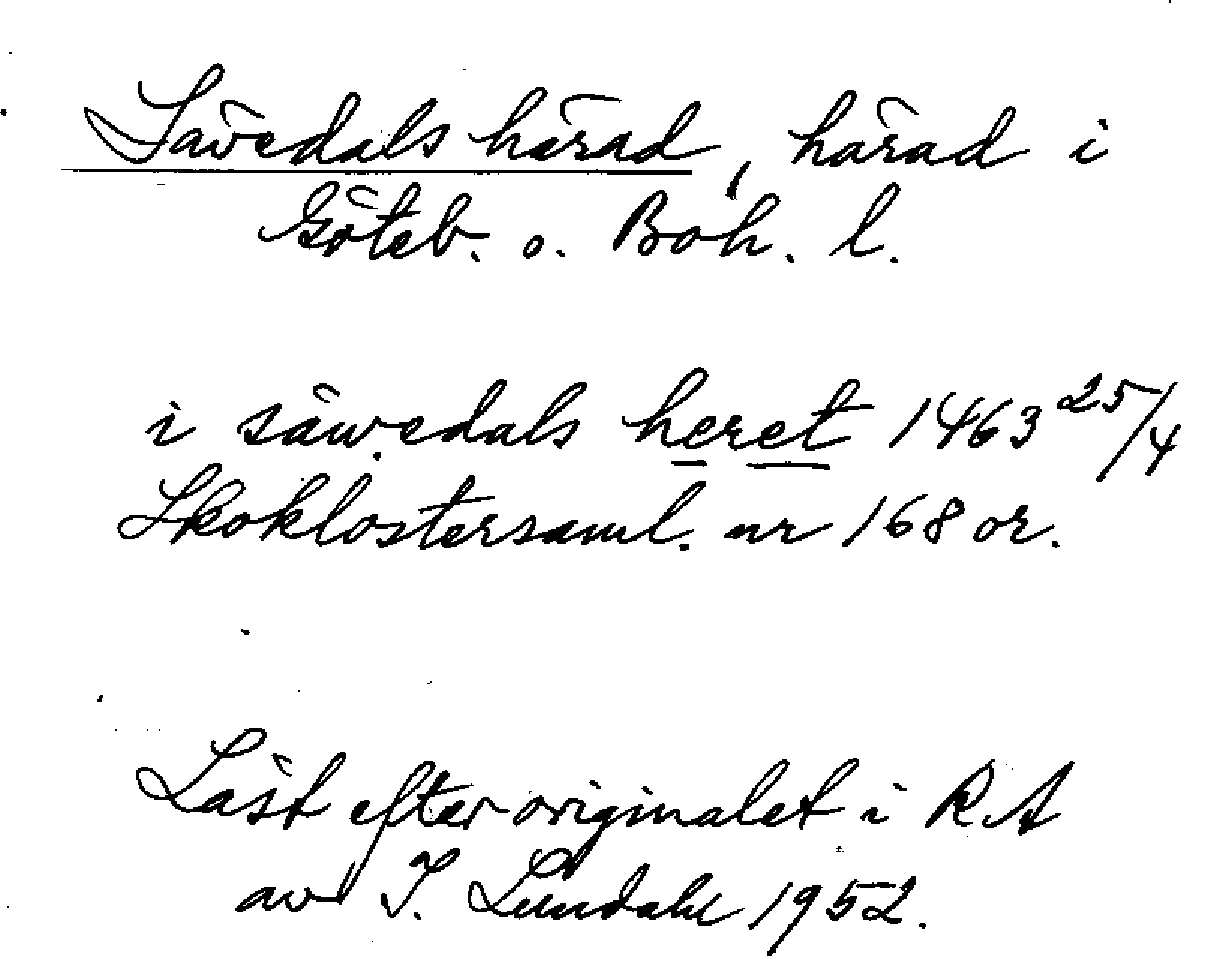 Sävedals härad, härad i
Göteb. o. Boh. l.
i säwedals heret 1463 25/4
Skoklostersaml. nr 168 or.
Läst efter originalet i RA
av I. Lundahl 1952.